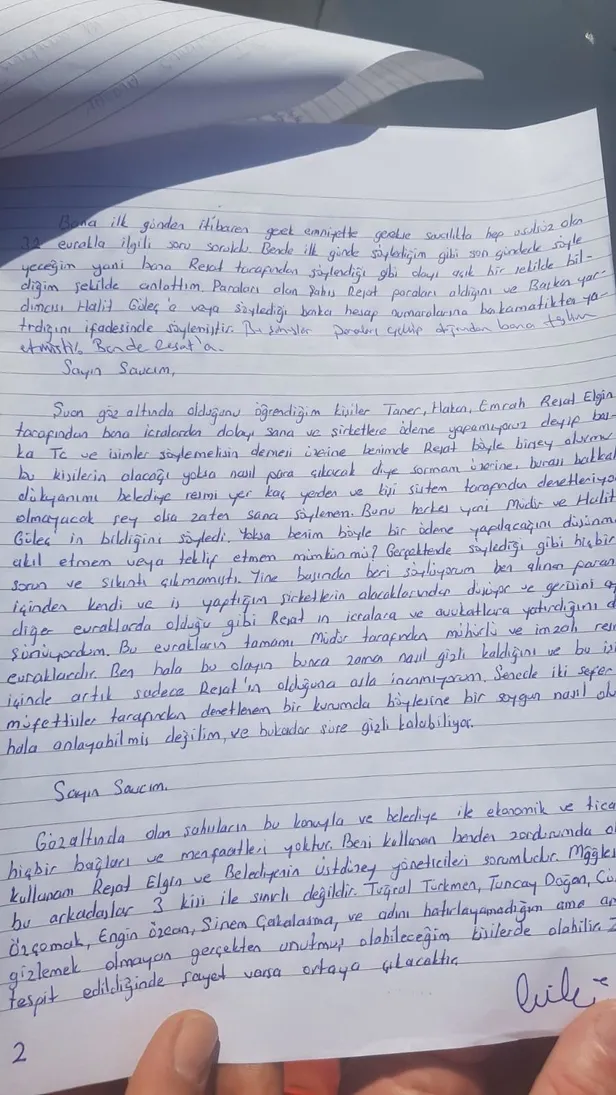 Bana ilk günden itibaren gerek emniyette gerekse savcılıkta hep usulsüz olan
32 evrakla ilgili soru soruldu. Bende ilk günde söylediğim gibi son gündede söyle
yeceğim yani bana Reşat tarafından söylendiği gibi olayı açık bir şekilde bil-
diğim şekilde anlattım. Paraları alan şahıs Reşat paraları aldığını ve Başkan yar-
dımcısı Halit Güleç'e veya söylediği banka hesap numaralarına bankamatikten ya
tırdığını ifadesinde söylemiştir. Bu şahıslar paraları çekip dışından bana teslim
etmiştir, Bende Reşat'a.
Sayın Savcım,
Şuan göz altında olduğunu öğrendiğim kişiler Taner, Hakan, Emrah Reşat Elgin
tarafından bana icralardan dolayı sana ve şirketlere ödeme yapamıyoruz deyip baş-
ka Tc ve isimler söylemelisin demesi üzerine benimde Reşat böyle birşey olurmu
bu kişilerin alacağı yoksa nasıl para çıkacak diye sormam üzerine, burası bakkal
dükyanımı belediye resmi yer kaç yerden ve kişi sistem tarafından denetleniyo
olmayacak şey olsa zaten sana söylemem. Bunu herkes yani Müdür ve Halit
Güleç in bildiğini söyledi. Yoksa benim böyle bir ödeme yapılacağını düşünm
akıl etmem veya teklif etmem mümkün mü? Gerçektende söylediği gibi hiçbir
sorun ve sıkıntı çıkmamıştı. Yine başından beri söylüyorum ben alınan paran
içinden kendi ve iş yaptığım şirketlerin alacaklarından düşüyor ve gerisini
diğer evraklarda olduğu gibi Reşat ın icralara ve avukatlara yatırdığını d
şünüyordum. Bu evrakların tamamı Müdür tarafından mühürlü ve imzalı res
evraklardır. Ben hala bu olayın bunca zaman nasıl gizli kaldığını ve bu iş
içinde artık sadece Reşat'ın olduğuna asla inanmıyorum. Senede iki sefer
müfettişler tarafından denetlenen bir kurumda böylesine bir soygun nasıl olu
hala anlayabilmiş değilim, ve bukadar süre gizli kalabiliyor.
Sayın Savcım.
Gözaltında olan şahısların bu konuyla ve belediye ile ekonomik ve tica
hiçbir bağları ve menfaatleri yoktur. Beni kullanan benden zor durumda
kullanan Reşat Elgin ve Belediyenin üstdüzey yöneticileri sorumludur.
bu arkadaşlar 3 kişi ile sınırlı değildir. Tuğrul Türkmen, Tuncay Doğan,
Özçomak, Engin Özcan, Sinem Çakalağma, ve adını hatırlayamadığım ama
gizlemek olmayan gerçekten unutmuş olabileceğim kişilerde olabilir.
tespit edildiğinde şayet varsa ortaya çıkacaktır.
2